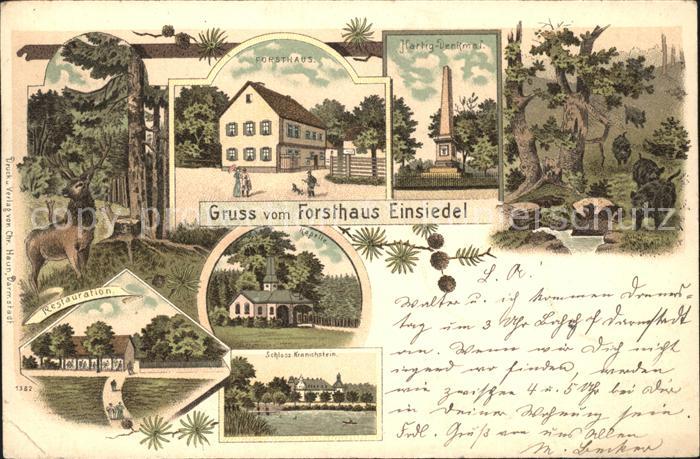 FORSTHAUS.
Hartig-Denkmal.
Gruss vom Forsthaus Einsiedel
Kapelle
Restauration.
Schloss Kranichstein.
Druck u. Verlag von Chr. Haun, Darmstadt
1382
L. A.!
Walter u. ich kommen Donners-
tag um 3 Uhr Bahnhof Darmstadt
an. Wenn wir Dich nicht
irgend wo finden, werden
wir zwischen 4 u. 5 Uhr bei Dir
in Deiner Wohnung sein.
Frdl. Gruß von uns Allen
M. Becker
copyright-bildschutz